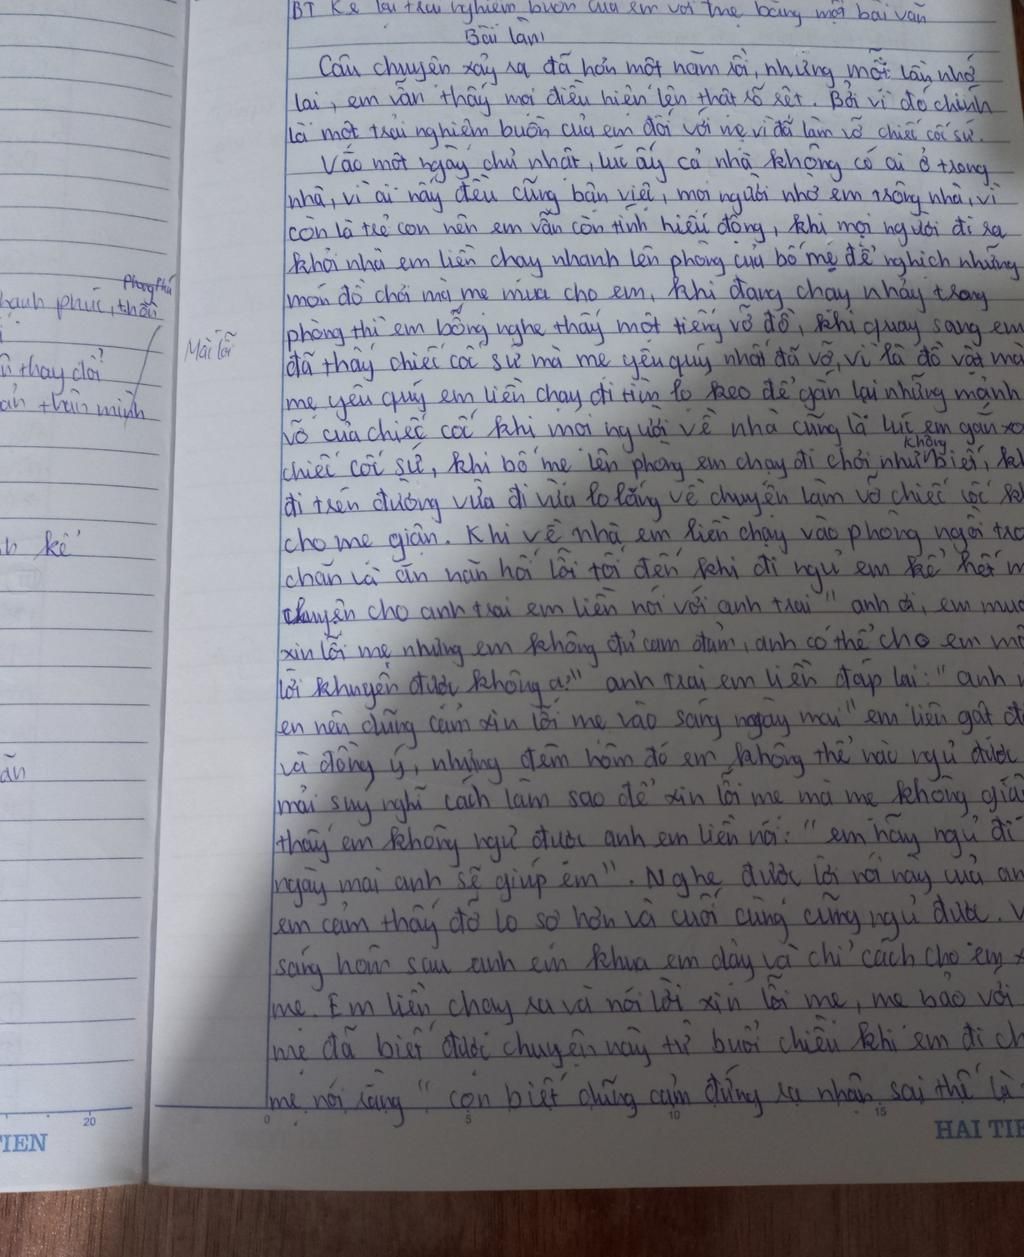 BT Kể lại trải nghiệm buồn của em với mẹ bằng một bài văn
Bài làm
Câu chuyện xảy ra đã hơn một năm rồi, nhưng mỗi lần nhớ
lại, em vẫn thấy mọi điều hiện lên thật rõ rệt. Bởi vì đó chính
là một trải nghiệm buồn của em đối với mẹ vì đã làm vỡ chiếc cốc sứ.
Vào một ngày chủ nhật, lúc ấy cả nhà không có ai ở trong
nhà, vì ai nấy đều cũng bận việc, mọi người nhờ em trông nhà, vì
còn là trẻ con nên em vẫn còn tính hiếu động, khi mọi người đi ra
khỏi nhà em liền chạy nhanh lên phòng của bố mẹ để nghịch những
món đồ chơi mà mẹ mua cho em, khi đang chạy nhảy trong
phòng thì em bỗng nghe thấy một tiếng vỡ đồ, khi quay sang em
đã thấy chiếc cốc sứ mà mẹ yêu quý nhất đã vỡ, vì là đồ vật mà
mẹ yêu quý em liền chạy đi tìm lọ keo để gắn lại những mảnh
vỡ của chiếc cốc khi mọi người về nhà cũng là lúc em gắn xo
chiếc cốc sứ, khi bố mẹ lên phòng em chạy đi chơi như không biết, kh
đi trên đường vừa đi vừa lo lắng về chuyện làm vỡ chiếc cốc
cho mẹ giận. Khi về nhà em liền chạy vào phòng ngồi tro
chăn và ăn năn hối lỗi tối đến khi đi ngủ em kể hết m
chuyện cho anh trai em liền nói với anh trai "anh ơi, em muố
xin lỗi mẹ nhưng em không đủ can đảm, anh có thể cho em mộ
lời khuyên được không ạ?" anh trai em liền đáp lại: "anh
en nên dũng cảm xin lỗi mẹ vào sáng ngày mai" em liền gật đ
và đồng ý, nhưng đêm hôm đó em không thể nào ngủ được
mải suy nghĩ cách làm sao để xin lỗi mẹ mà mẹ không giậ
thấy em không ngủ được anh em liền nói: "em hãy ngủ đi
ngày mai anh sẽ giúp em". Nghe được lời nói này của an
em cảm thấy đỡ lo sợ hơn và cuối cùng cũng ngủ được. V
sáng hôm sau anh em khua em dậy và chỉ cách cho em x
mẹ. Em liền chạy ra và nói lời xin lỗi mẹ, mẹ bảo với
mẹ đã biết được chuyện này từ buổi chiều khi em đi ch
mẹ nói rằng "con biết dũng cảm đứng ra nhận sai thế là
Mải lỗi
Phong Phú
hạnh phúc, thân
thay đổi
ản thân mình
kể
0 5 10 15
HAI TIE
20
TIEN